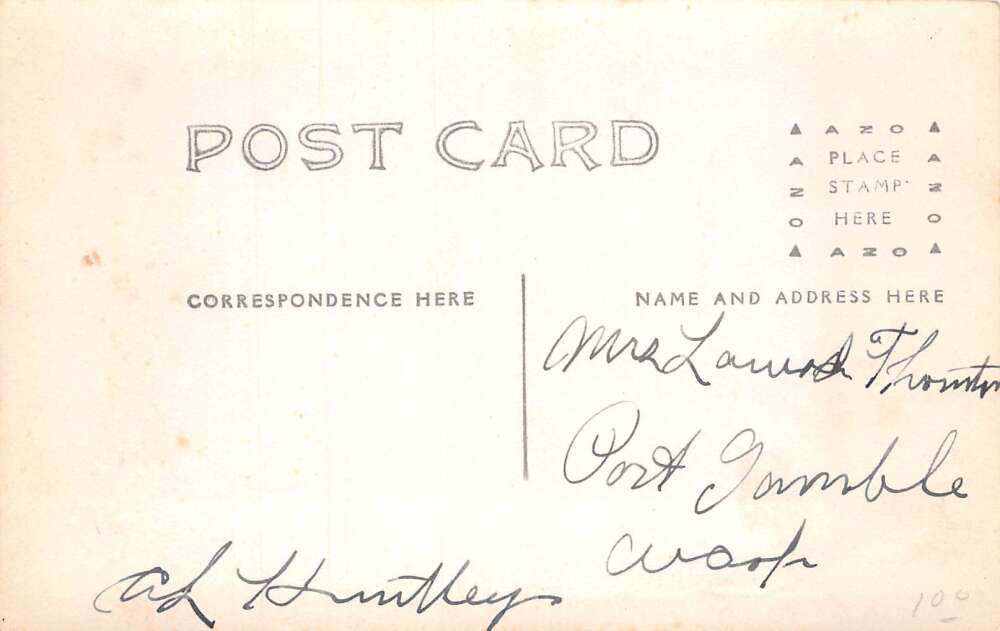 POST CARD
▲ AZO ▲
A PLACE A
Z STAMP Z
O HERE O
▲ AZO ▲
CORRESPONDENCE HERE
NAME AND ADDRESS HERE
Mrs Thornton
Port Gamble
Wash
Al Huntley
100